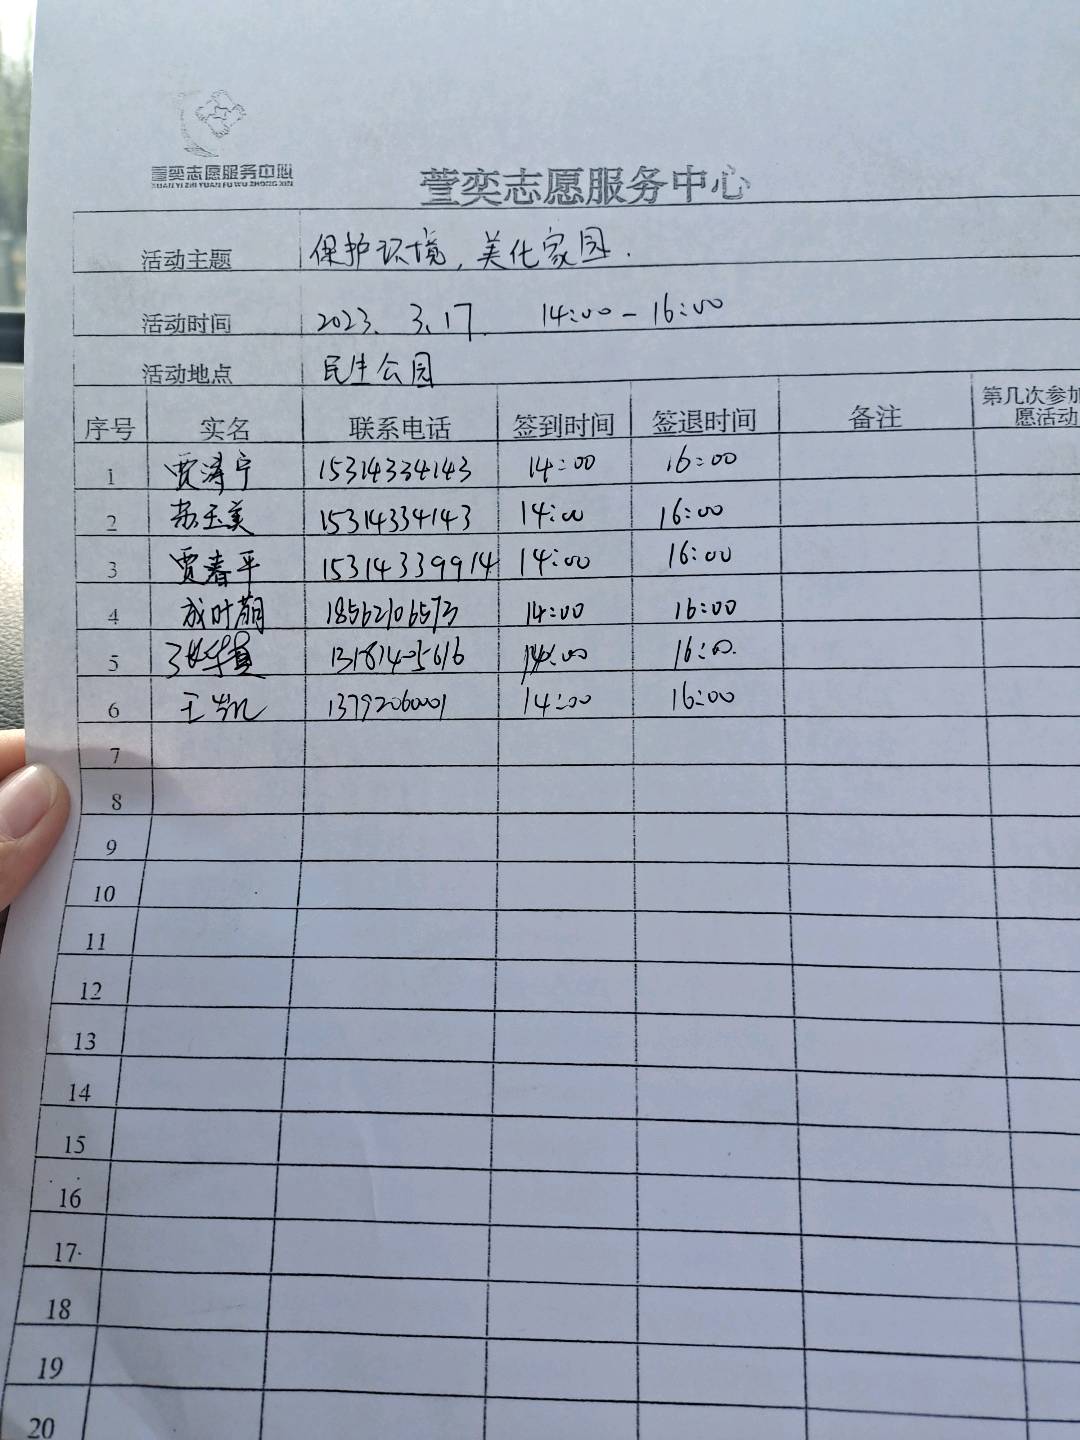 萱奕志愿服务中心
XUAN YI ZHI YUAN FU WU ZHONG XIN
萱奕志愿服务中心
活动主题 保护环境,美化家园.
活动时间 2023.3.17. 14:00-16:00
活动地点 民生公园
序号 实名 联系电话 签到时间 签退时间 备注 第几次参加
愿活动
1 贾涛宁 15314334143 14:00 16:00
2 苏玉美 15314334143 14:00 16:00
3 贾春平 15314339914 14:00 16:00
4 成叶萌 18562106573 14:00 16:00
5 14:00 16:00.
6 王岩 13792060001 14:00 16:00
7
8
9
10
11
12
13
14
15
16
17
18
19
20